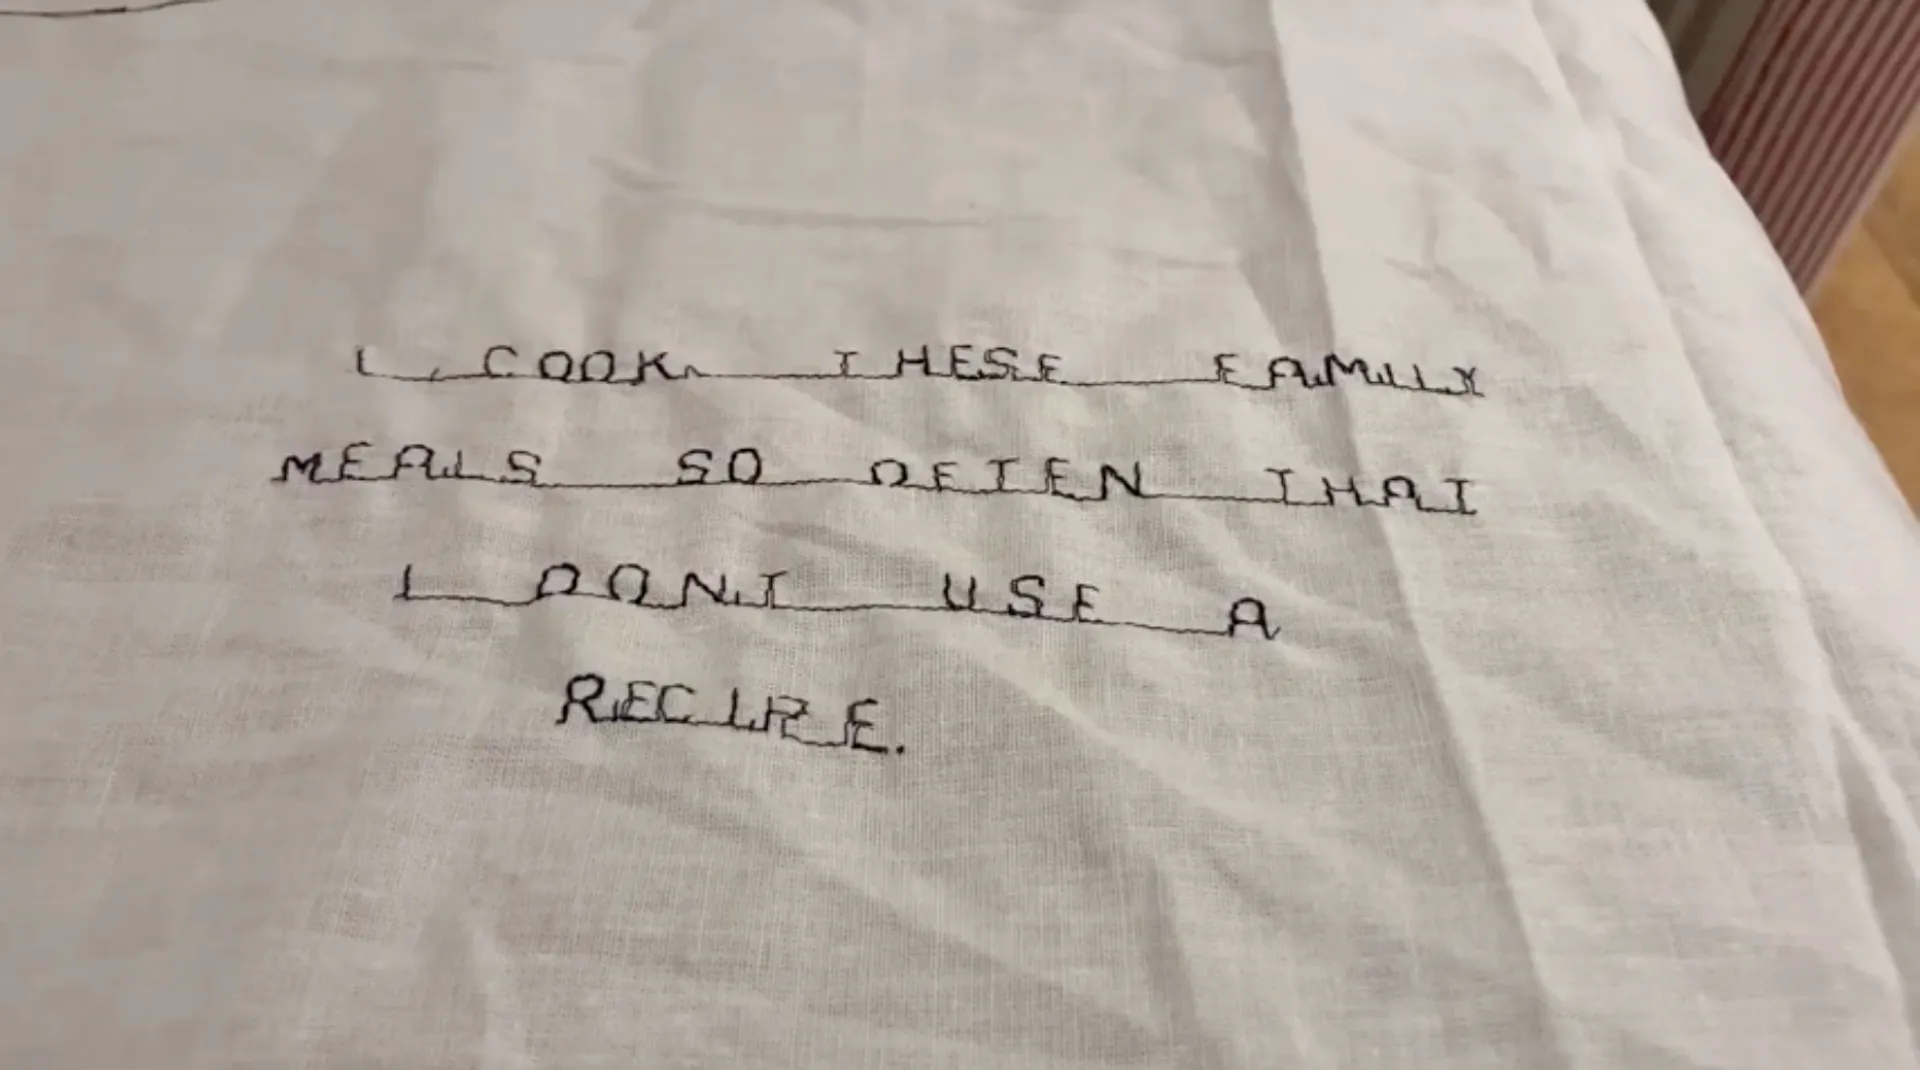 I COOK THESE FAMILY
MEALS SO OFTEN THAT
I DONT USE A
RECIPE.